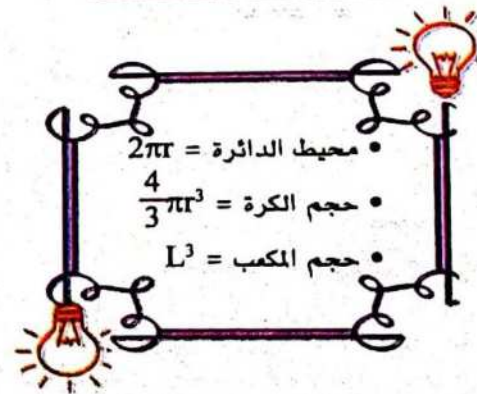 • محيط الدائرة = 2πr
• حجم الكرة = 4/3 πr³
• حجم المكعب = L³